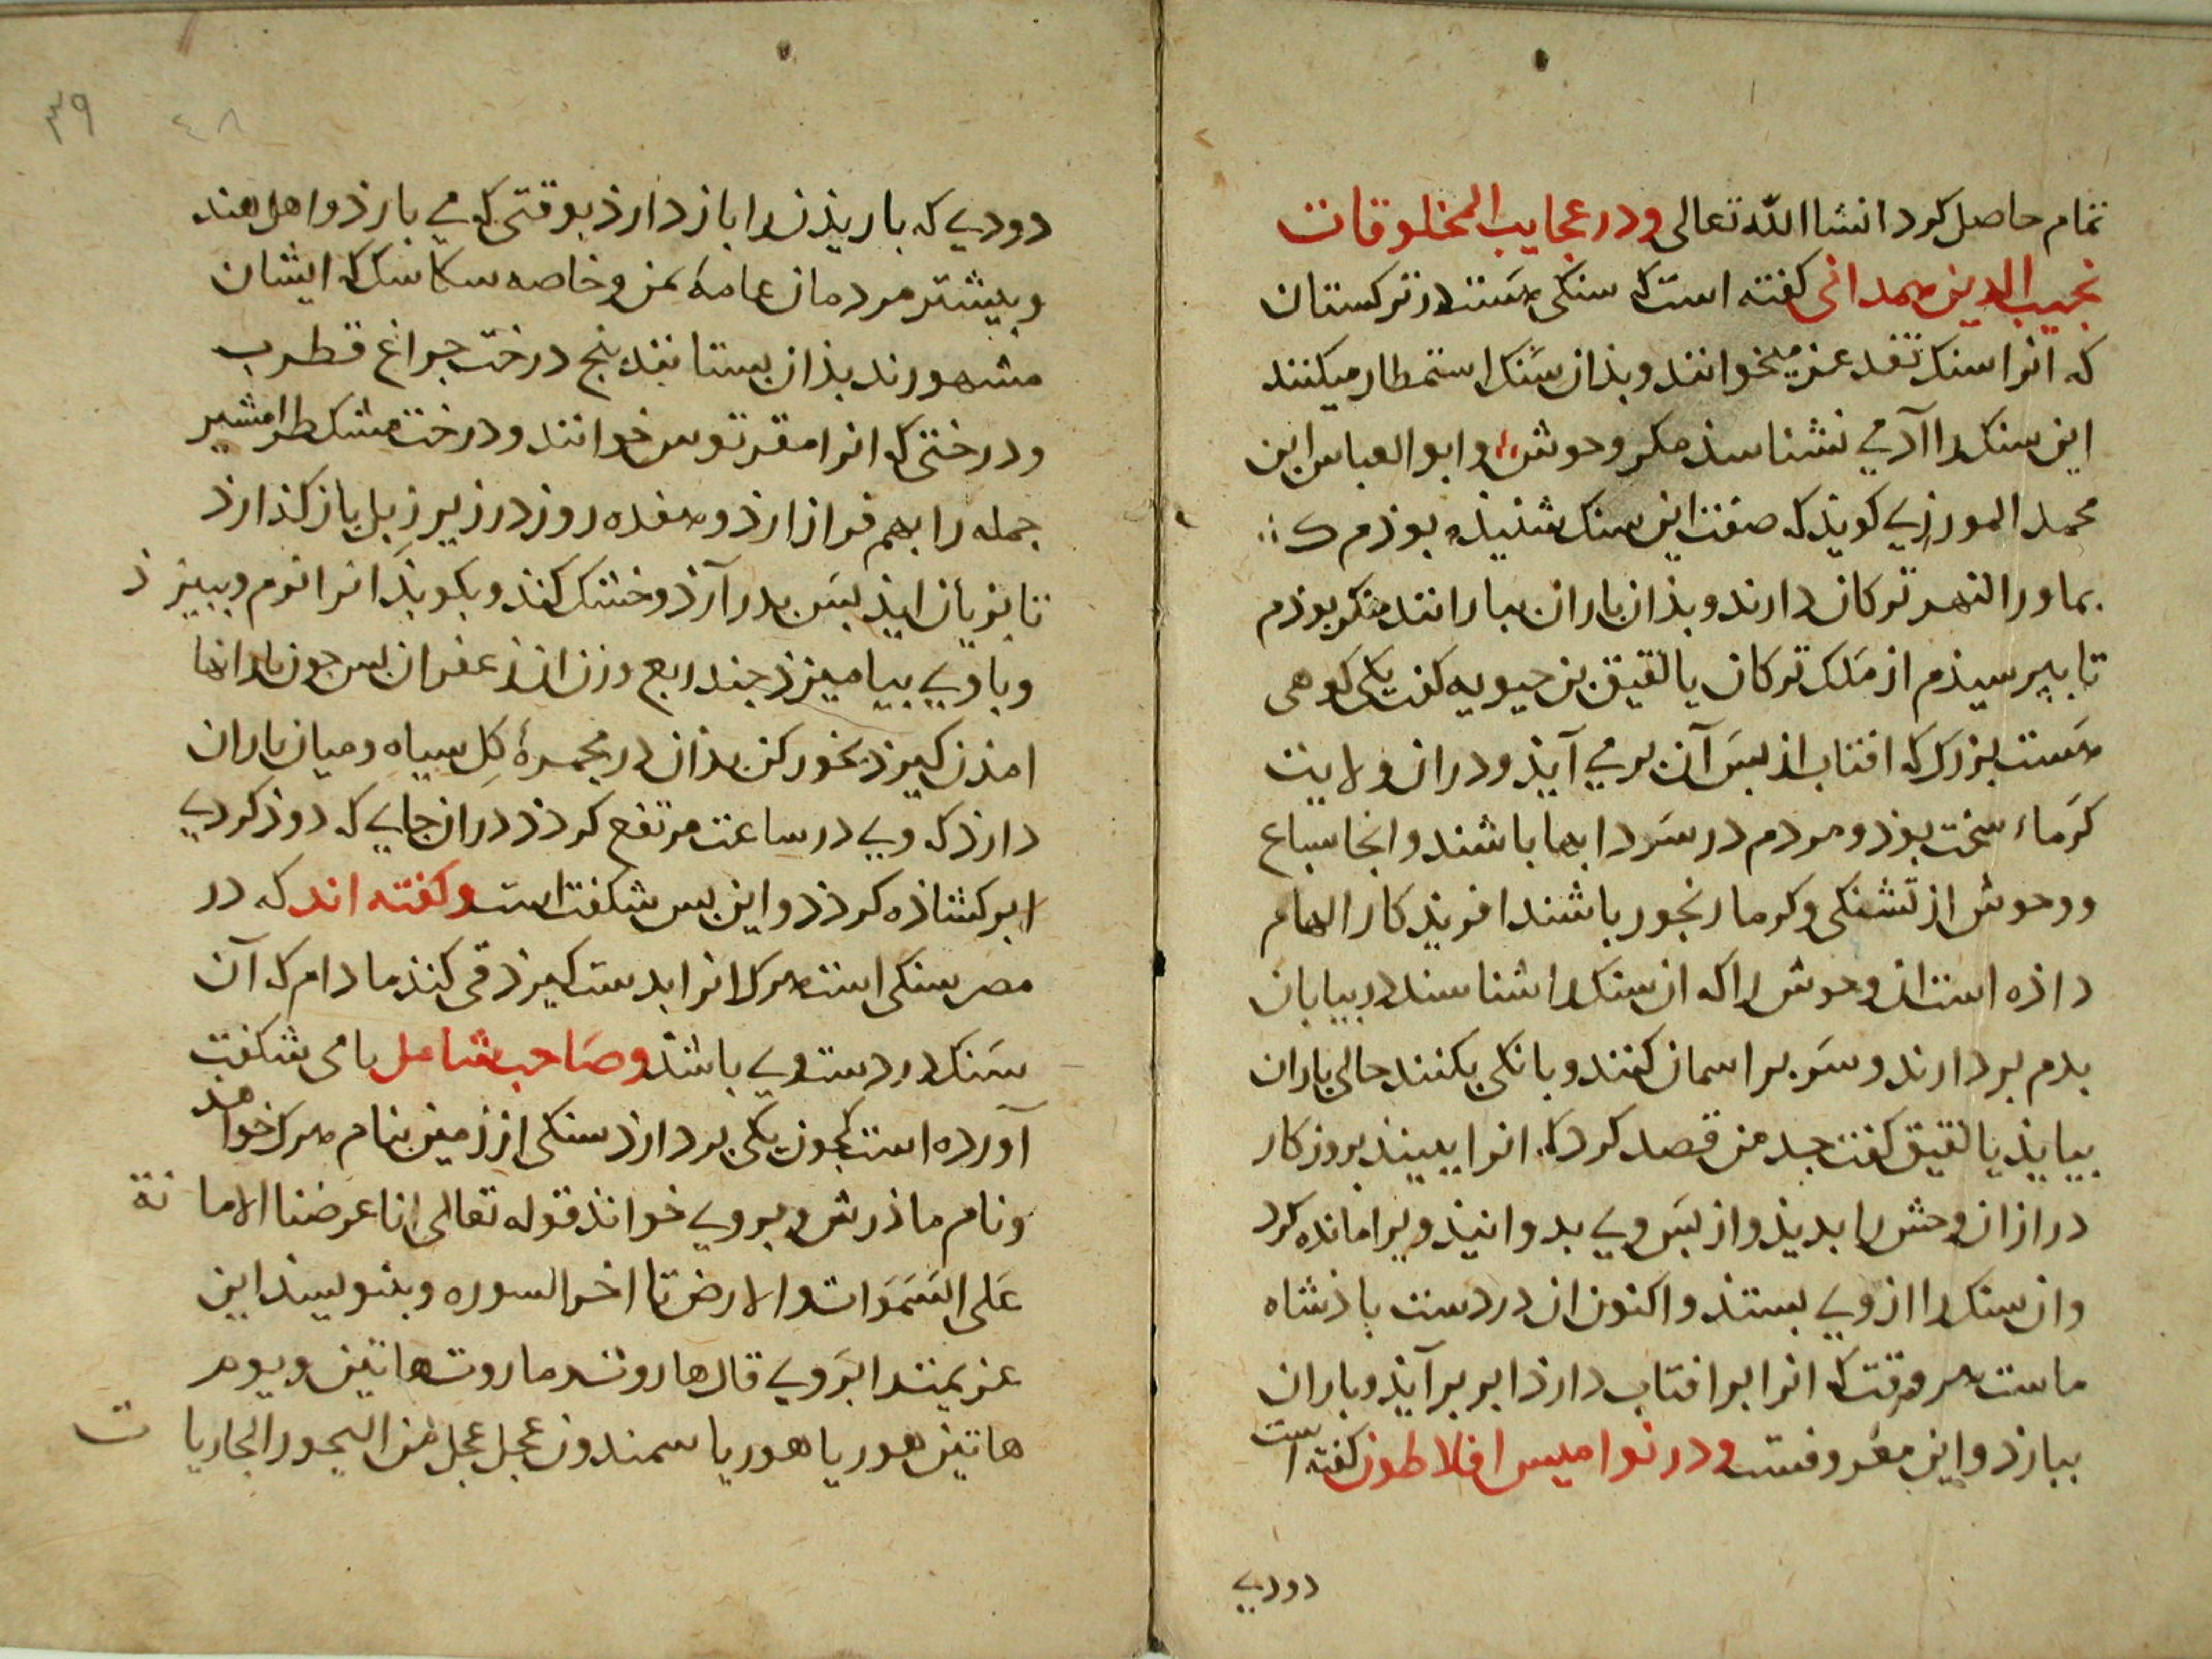 تمام حاصل کردد انشا الله تعالی ودر عجایب المخلوقات
نجیب الدین همدانی کفته است که سنکی هست در ترکستان
که انرا سنک تقد عز میخوانند وبذان سنک استمطار میکنند
این سنک را آدمی نشناسذ مکر وحوش وابو العباس ابن
محمد المورزی کویذ که صفت این سنک شنیذه بوذم ک
بماورا النهر ترکان دارند وبذان باران ببارانند منکر بوذم
تا بپرسیذم از ملک ترکان یالقیق بن حیویه کفت یکی کوهی
هست بزرک که افتاب از بس آن برمی آیذ ودران ولایت
کرماء سخت بوذ ومردم در سردابها باشند وانجا سباع
ووحوش از تشنکی وکرما رنجور باشند افریذکار الهام
داذه است ان وحوش را که ان سنک را شناسند در بیابان
بدم بردارند وسر بر اسمان کنند وبانکی بکنند حالی باران
بیایذ یالقیق کفت جد من قصد کرد که انرا ببینذ بروزکار
دراز ان وحش را بدیذ واز بس وی بدوانیذ ویرا مانده کرد
وان سنک را از وی بستذ واکنون ان در دست باذشاه
ماست هر وقت که انرا بر افتاب دارذ ابر برآیذ وباران
ببارذ واین معروفست ودر نوامیس افلاطون کفته است
دودی
٣٩
٤٨
دودی که باریذن را باز دارذ بوقتی که می بارذ واهل هند
وبیشتر مردمان عامهٔ یمن وخاصه سکاسک که ایشان
مشهورند بذان بستانند بنج درخت جراغ قطرب
ودرختی که انرا مقرتوس خوانند ودرخت مشک طرامشیر
جمله را بهم فراز ارذ وهفده روز در زیر زبل باز کذارذ
تا بزیان ایذ بس بدر آرذ وخشک کنذ وبکوبذ انرا نرم وببیزذ
وباوی بیامیزذ جند ربع وزن ان زعفران بس جون باد انها
امذن کیرذ بخور کن بذان در مجمرهٔ کل سیاه ومیان باران
دارذ که وی در ساعت مرتفع کردذ دران جای که دوذ کردی
ابر کشاذه کردذ واین بس شکفت است وکفته اند که در
مصر سنکی است هرکه انرا بدست کیرذ قی کنذ مادام که آن
سنک در دست وی باشذ وصاحب شامل بامی شکفت
آورده است کجون یکی بردارذ سنکی از زمین بنام هرکه خواهد
ونام ماذرش وبروی خوانذ قوله تعالی انا عرضنا الامانة
علی السموات والارض تا اخر السوره وبنویسند این
عزیمت را بروی قال هاروت وماروت هاتین ویوهر
هاتین هوریا هوریا سمندون عجل عجل من البحور الجاریات